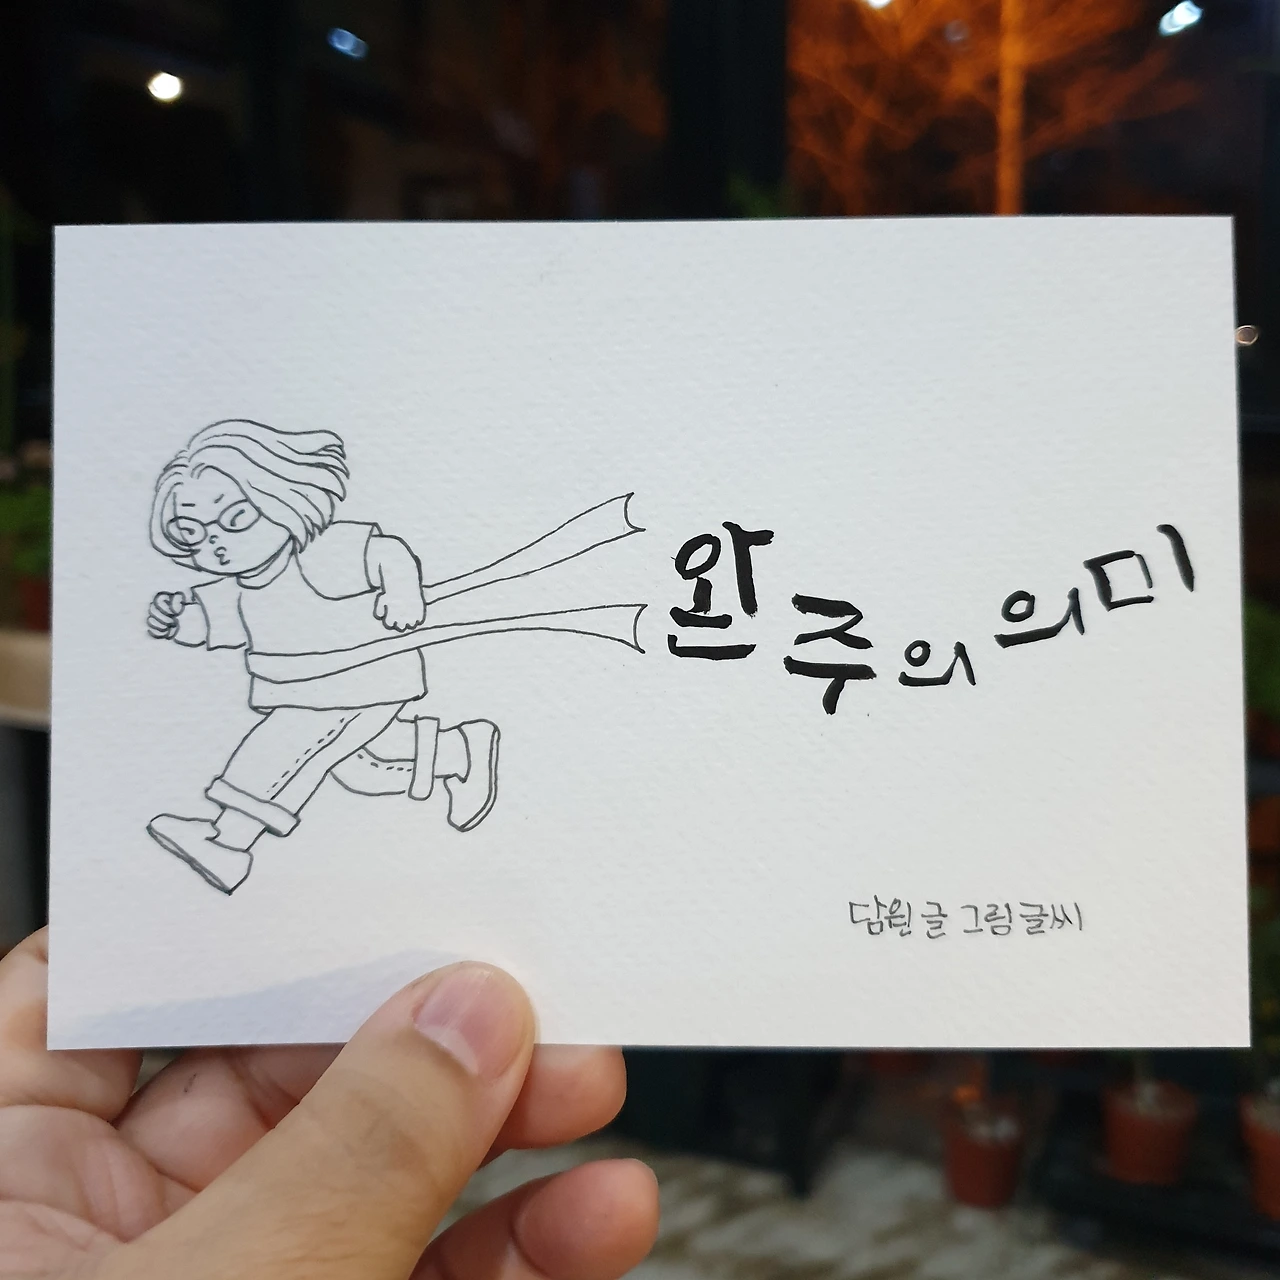 완주의 의미
담원 글 그림 글씨